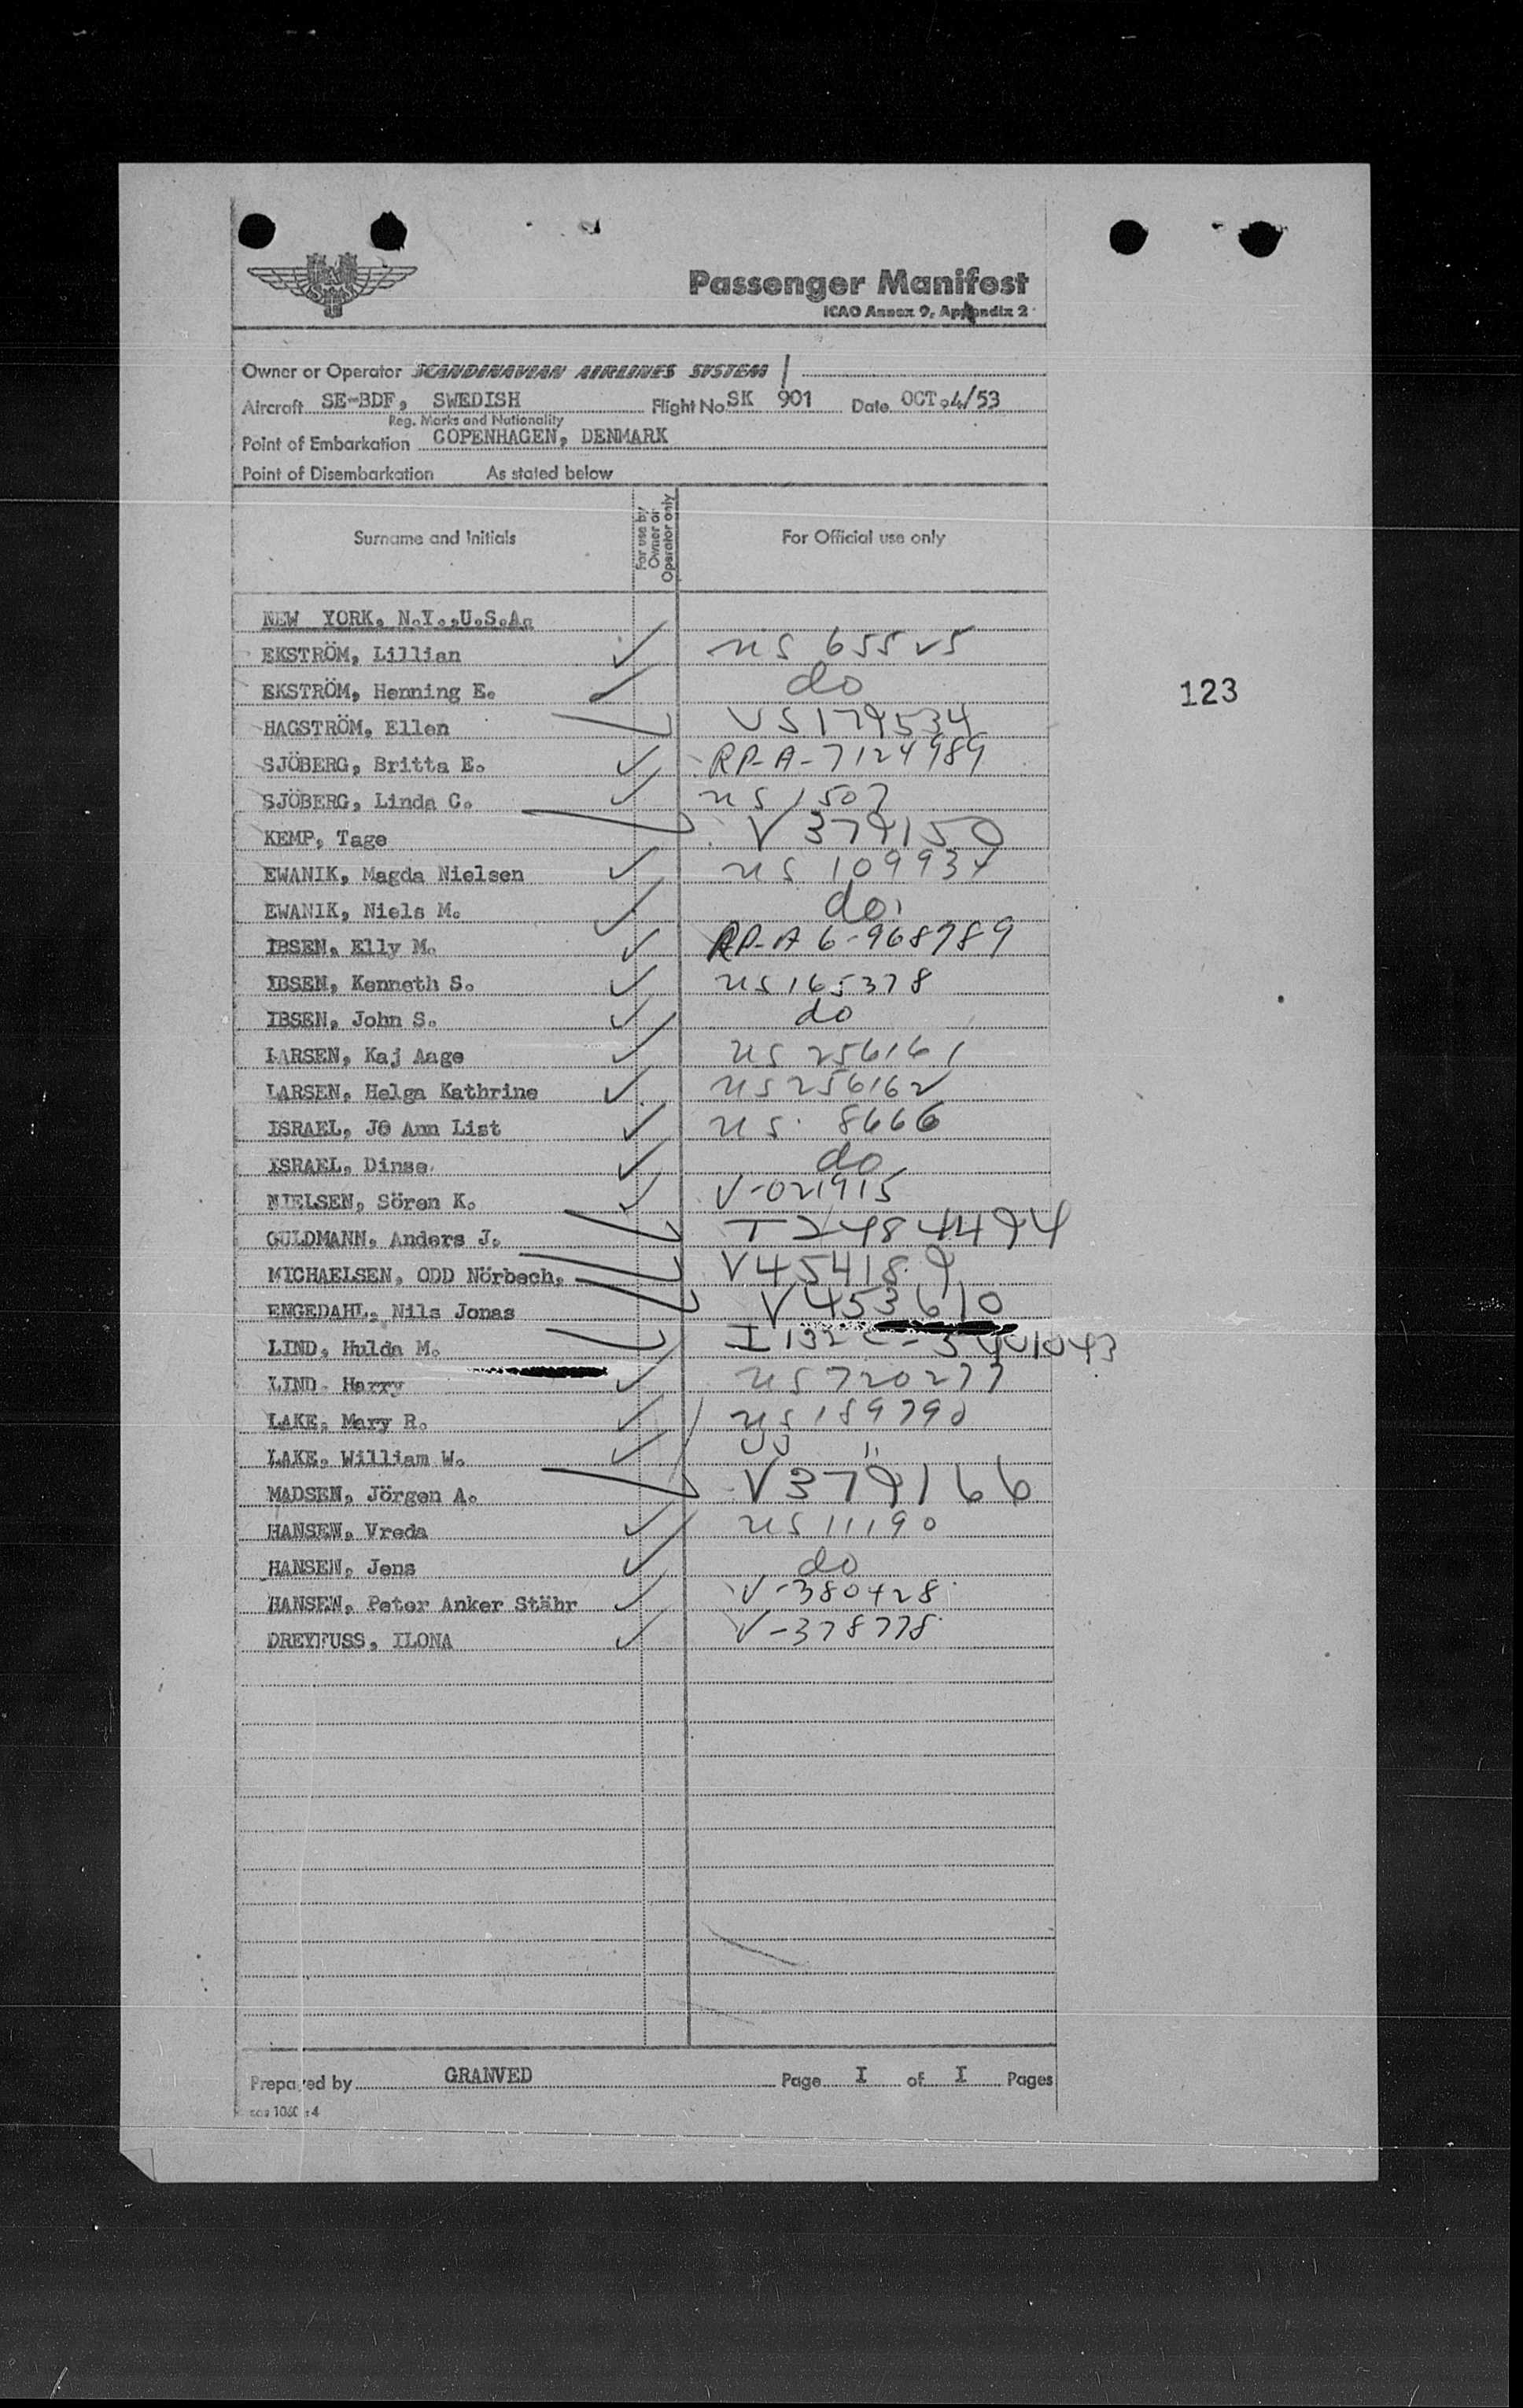 SAS
Passenger Manifest
ICAO Annex 9, Appendix 2
Owner or Operator SCANDINAVIAN AIRLINES SYSTEM
Aircraft SE-BDF, SWEDISH Flight No. SK 901 Date OCT.4/53
Reg. Marks and Nationality
Point of Embarkation COPENHAGEN, DENMARK
Point of Disembarkation As stated below
Surname and Initials For use by Owner or Operator only For Official use only
NEW YORK, N.Y.,U.S.A.
EKSTRÖM, Lillian ✓ US 65525
EKSTRÖM, Henning E. ✓ do
123
HAGSTRÖM, Ellen VS179534
SJÖBERG, Britta E. ✓ RP-A-7124989
SJÖBERG, Linda C. ✓ US 1507
KEMP, Tage V 379150
EWANIK, Magda Nielsen ✓ US 109934
EWANIK, Niels M. ✓ do
IBSEN, Elly M. ✓ RP-A 6-968789
IBSEN, Kenneth S. ✓ US 165378
IBSEN, John S. ✓ do
LARSEN, Kaj Aage ✓ US 256161
LARSEN, Helga Kathrine ✓ US 256162
ISRAEL, JO Ann List ✓ US. 8666
ISRAEL, Dinse ✓ do
NIELSEN, Sören K. ✓ V-021915
GULDMANN, Anders J. T 2484494
MICHAELSEN, ODD Nörbech. V454189
ENGEDAHL, Nils Jonas V453610
LIND, Hulda M.
LIND, Harry ✓ US 720277
LAKE, Mary R. ✓ US 189790
LAKE, William W. ✓ "
MADSEN, Jörgen A. V379166
HANSEN, Vreda ✓ US 11190
HANSEN, Jens ✓ do
HANSEN, Peter Anker Stähr ✓ V-380428
DREYFUSS, ILONA ✓ V-378778
Prepared by GRANVED Page I of I Pages